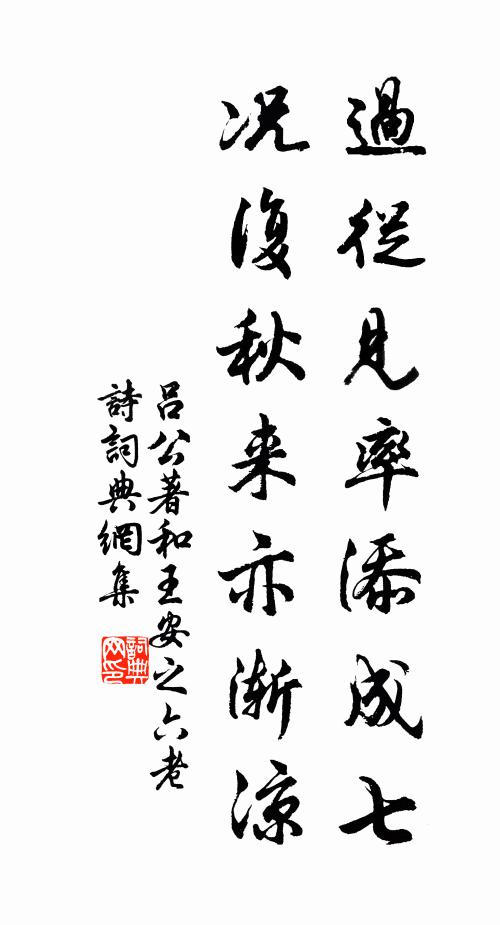 過從見率添成七
况復秋来亦漸涼
吕公著和王安之六老
詩詞典網集
詞典
网印